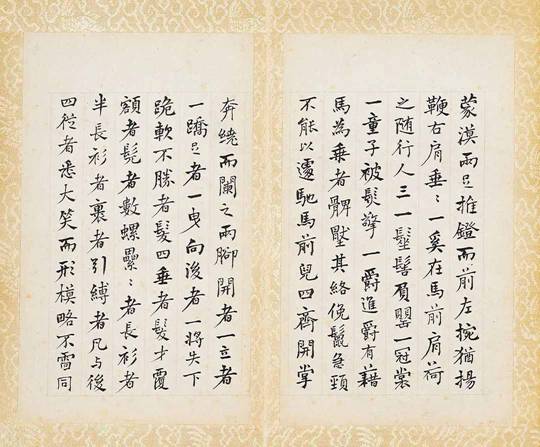 蒙漠兩足推鐙而前左捥猶揚
鞭右肩垂〻一奚在馬前肩荷
之随行人三一髽髻負罌一冠裳
一童子被髮擎一爵進爵有藉
馬為乗者髀壓其絡俛鬣急頸
不能以遽馳馬前兒四齊開掌
奔繞而闌之兩腳開者一立者
一蹻足者一曳向後者一將失下
跪軟不勝者髮四垂者髮才覆
額者髡者數螺纍〻者長衫者
半長衫者裹者引縛者凡与後
四從者悉大笑而形模略不雷同